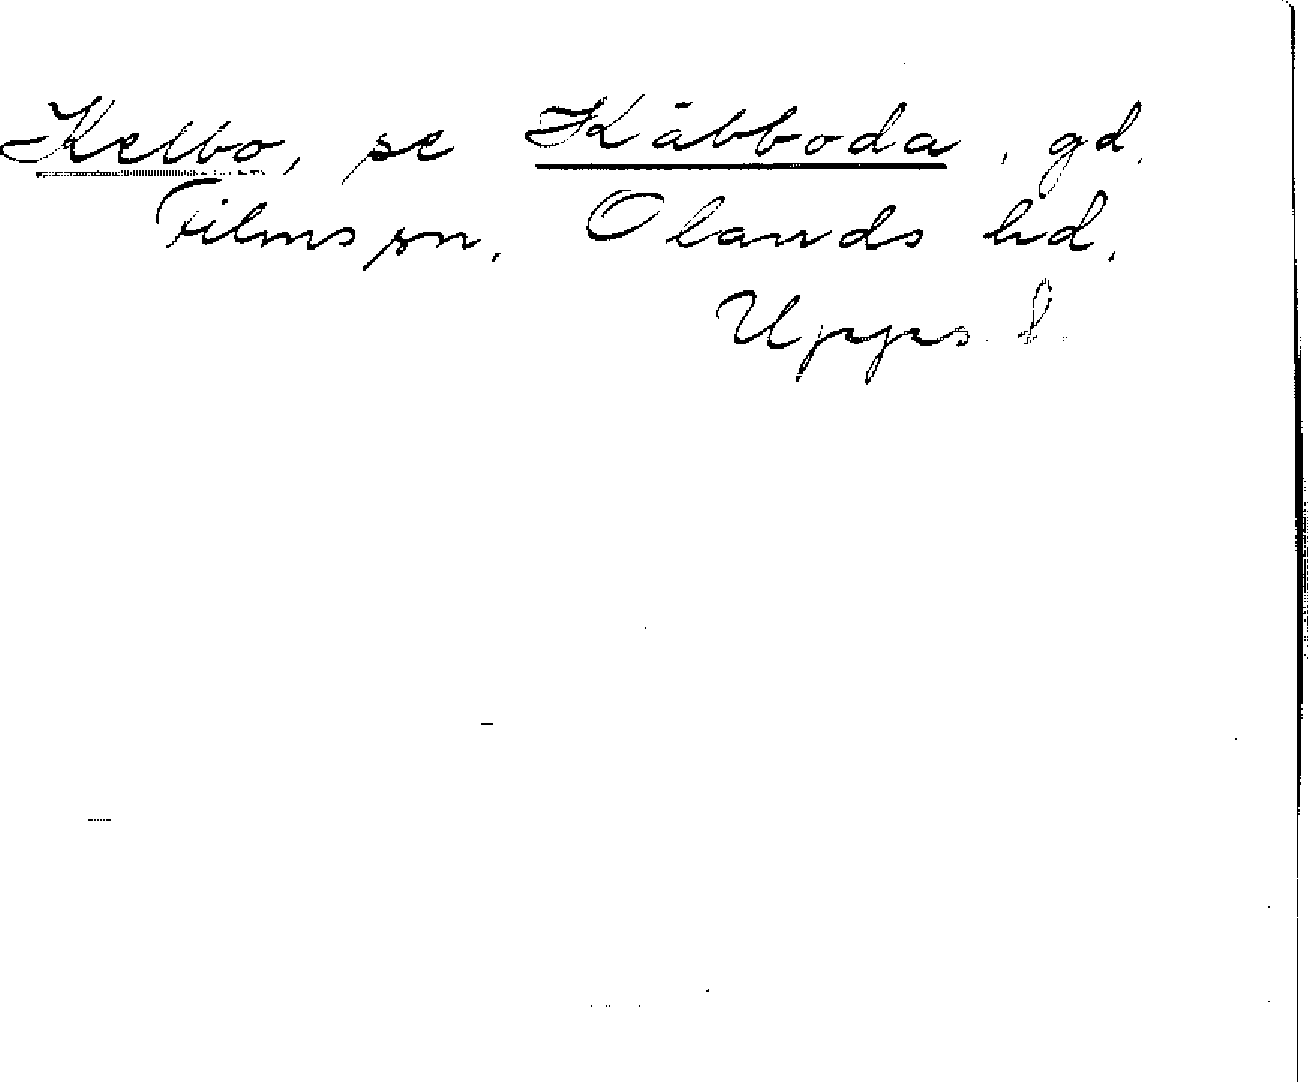 Kelbo, se Käbboda, gd.
Films sn, Olands hd,
Upps. l.